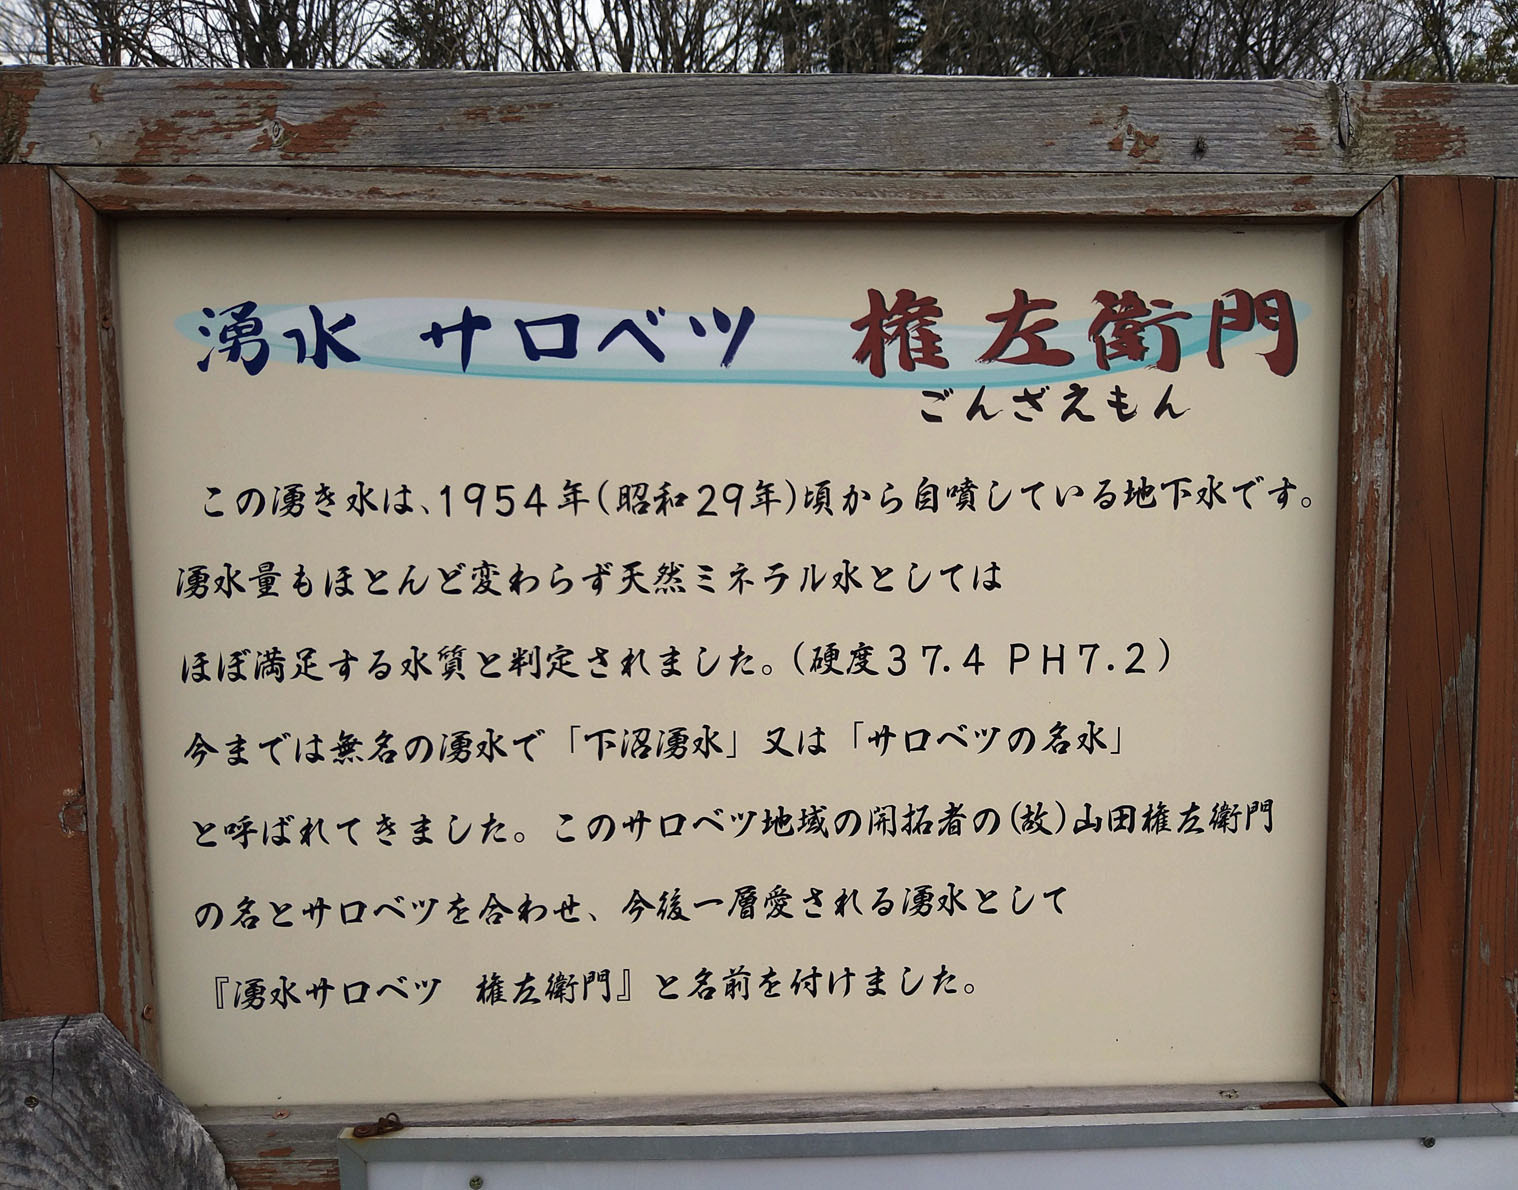 湧水 サロベツ 権左衛門
ごんざえもん
この湧き水は、1954年(昭和29年)頃から自噴している地下水です。
湧水量もほとんど変わらず天然ミネラル水としては
ほぼ満足する水質と判定されました。(硬度37.4 PH7.2)
今までは無名の湧水で「下沼湧水」又は「サロベツの名水」
と呼ばれてきました。このサロベツ地域の開拓者の(故)山田権左衛門
の名とサロベツを合わせ、今後一層愛される湧水として
『湧水サロベツ 権左衛門』と名前を付けました。